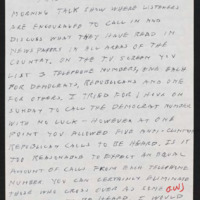 MORNING TALK SHOW WHERE LISTENERS
ARE ENCOURAGED TO CALL IN AND
DISCUSS WHAT THEY HAVE READ IN
NEWSPAPERS IN ALL AREAS OF THE
COUNTRY. ON THE TV SCREEN YOU
LIST 3 TELEPHONE NUMBERS, ONE EACH
FOR DEMOCRATS, REPUBLICANS AND ONE
FOR OTHERS. I TRIED FOR 1 HOUR ON
SUNDAY TO CALL THE DEMOCRAT NUMBER
WITH NO LUCK - HOWEVER AT ONE
POINT YOU ALLOWED FIVE ANTI-CLINTON
REPUBLICAN CALLS TO BE HEARD. IS IT
TOO REASONABLE TO EXPECT AN EQUAL
AMOUNT OF CALLS FROM EACH TELEPHONE
NUMBER YOU CAN CERTAINLY ELIMINATE
THOSE WHO CROSS OVER AS SOME
HEARD I WOULD